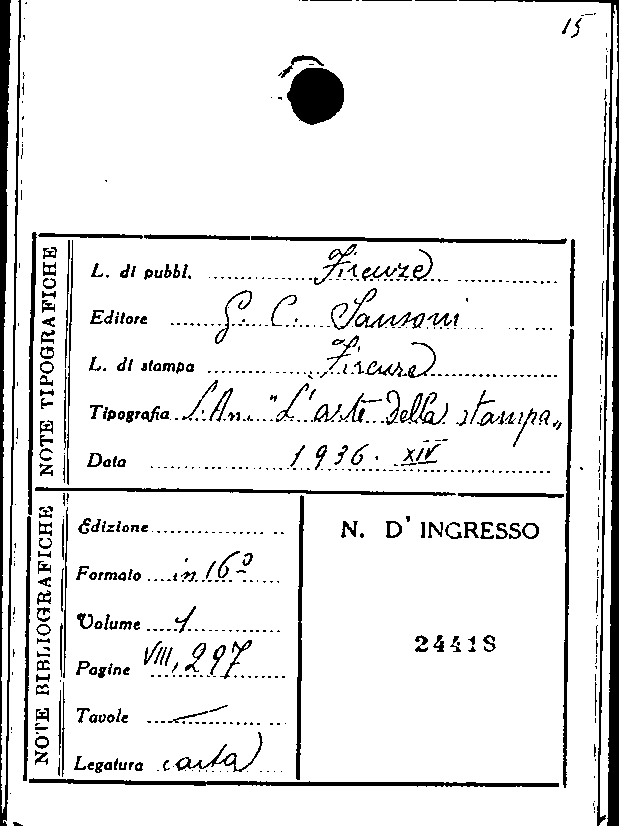 15
NOTE TIPOGRAFICHE
L. di pubbl. Firenze
Editore G. C. Sansoni
L. di stampa Firenze
Tipografia S. An. "L'arte della stampa„
Data 1936. XIV
NOTE BIBLIOGRAFICHE
Edizione
Formato in 16º
Volume 1
Pagine VIII, 297
Tavole —
Legatura carta
N. D' INGRESSO
24418